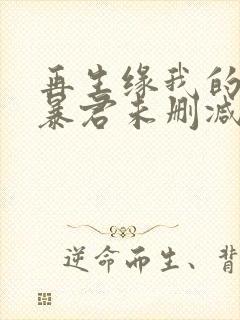 再生缘我的
暴君未删减
逆命而生、背